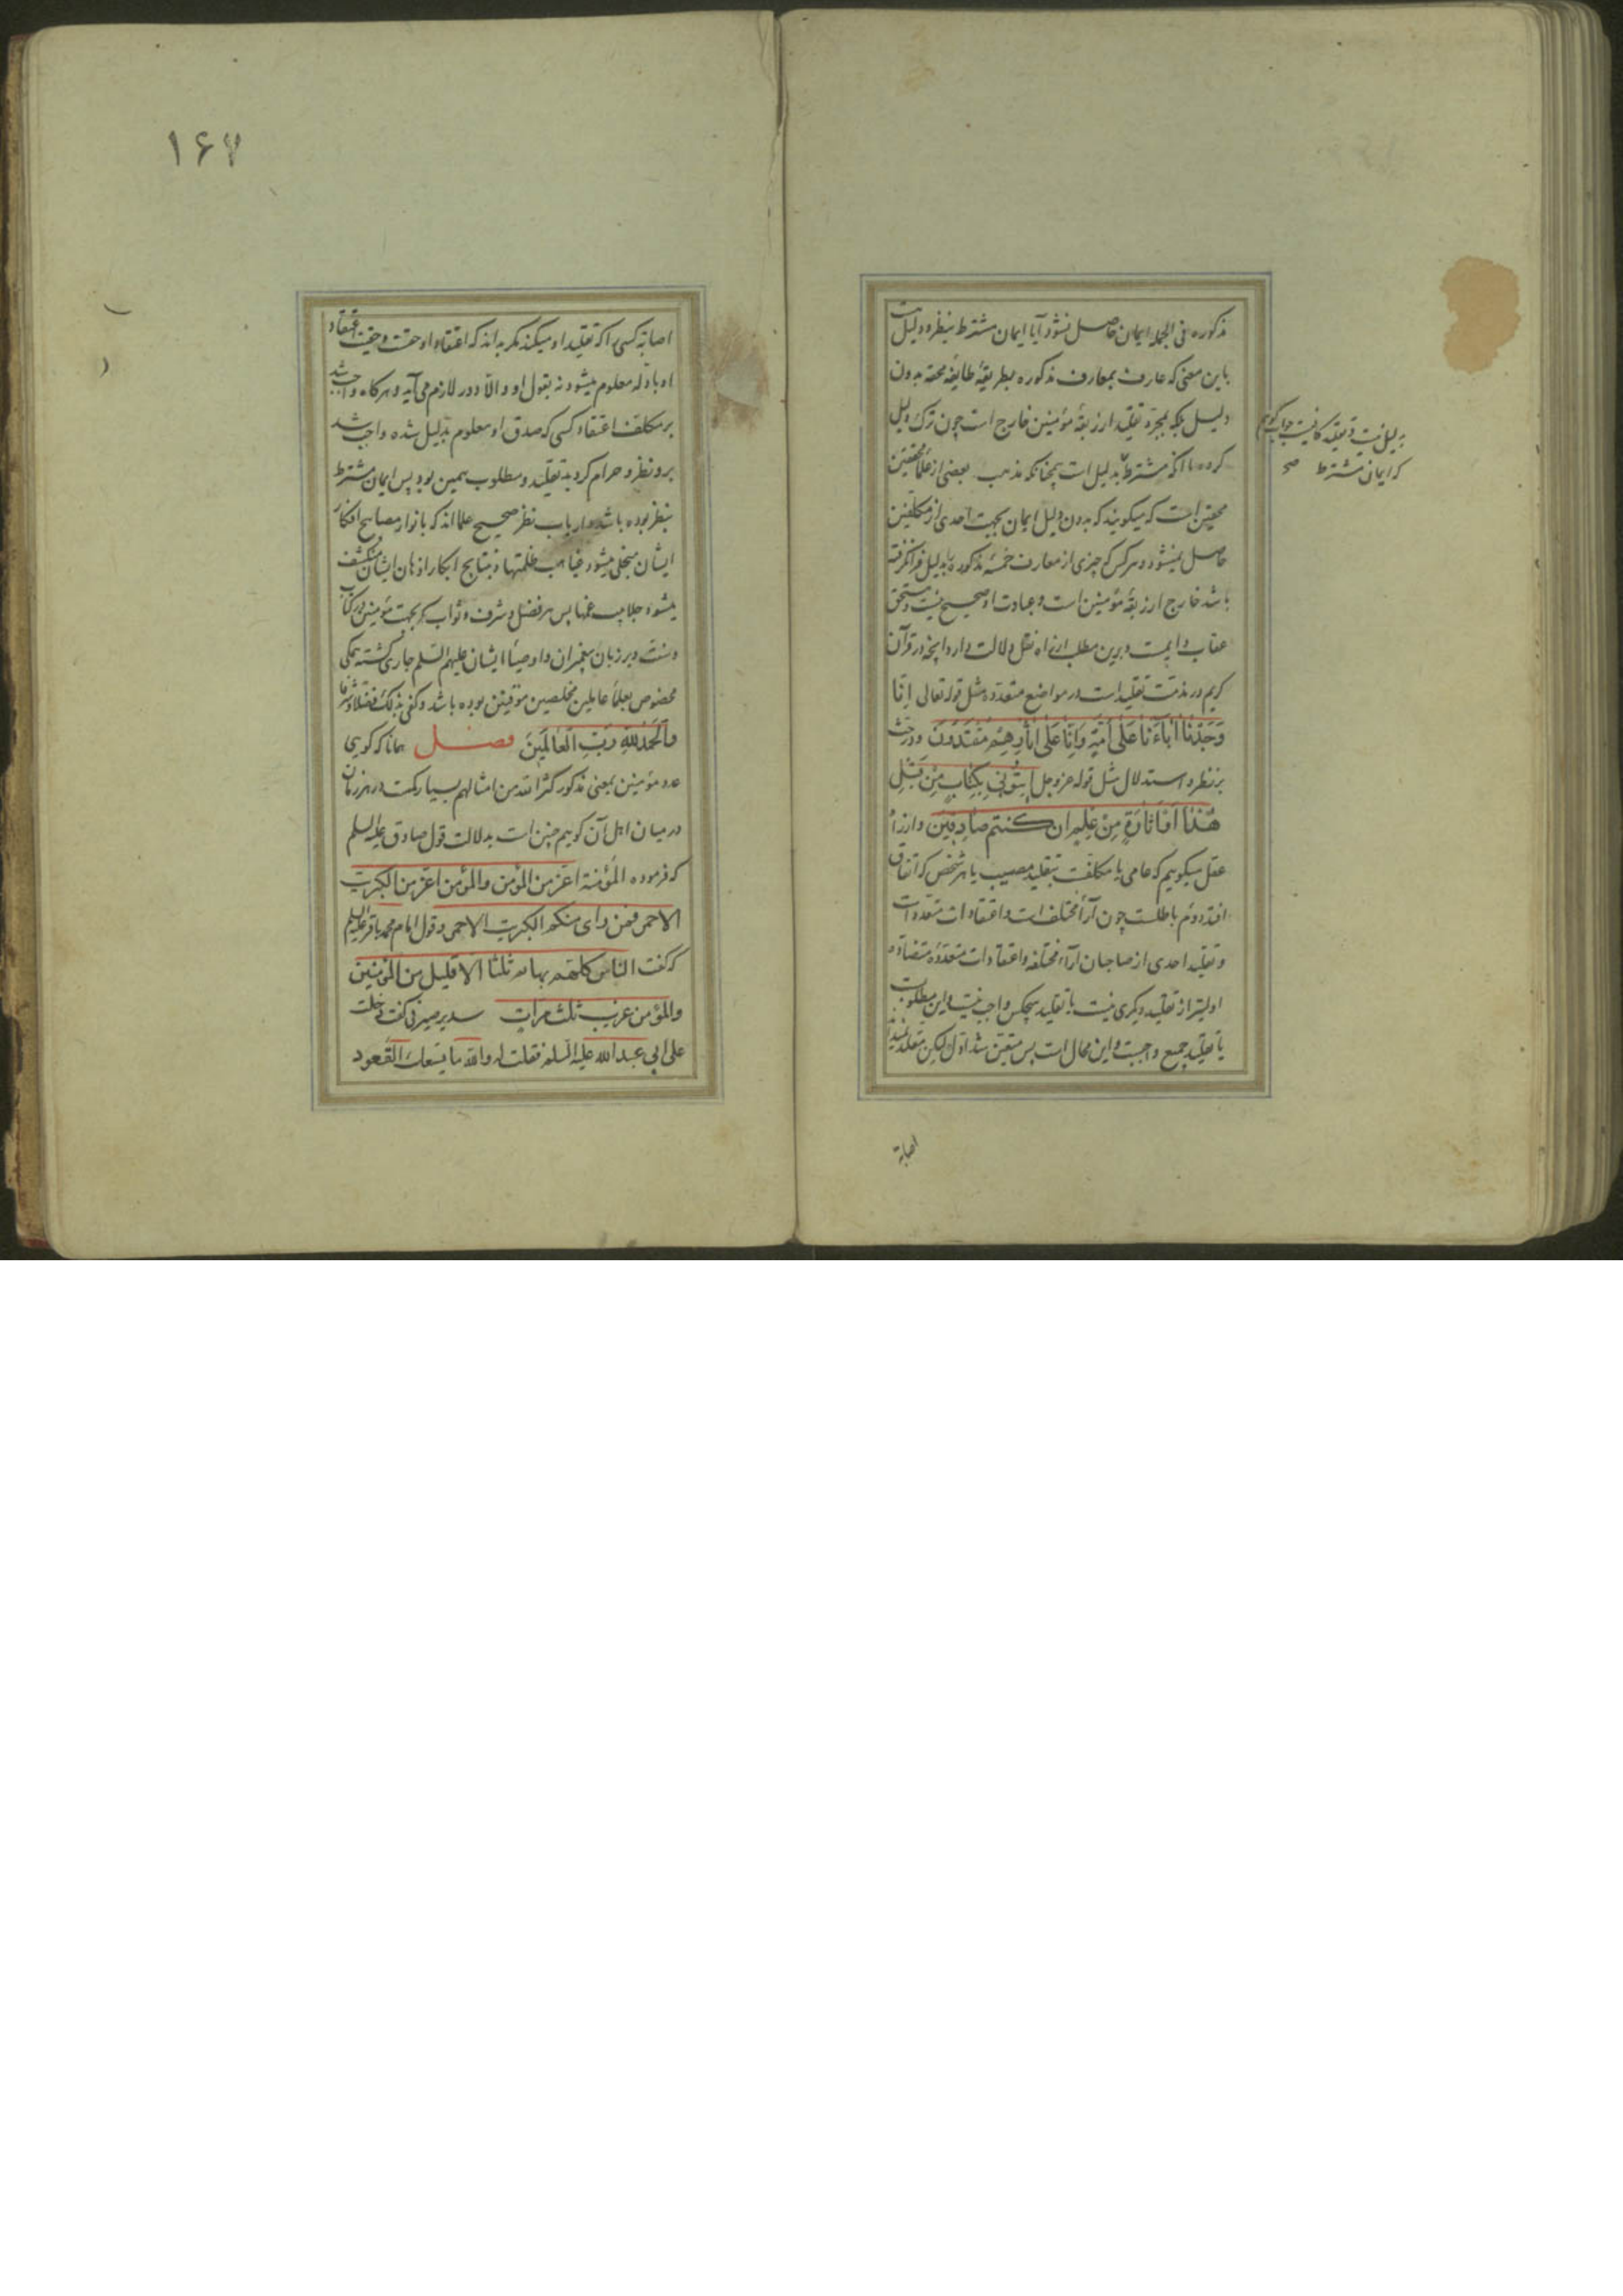 مذکوره فی الجمله ایمان حاصل نشود آیا ایمان مشترط بنظر و دلیلست
باین معنی که عارف بمعارف مذکوره بطریقهٔ طایفهٔ محقه بدون
دلیل بلکه بمجرد تقلید از ربقهٔ مؤمنین خارج است چون ترک دلیل
کرده یا آنکه مشترط بدلیل است چنانکه مذهب بعضی از علماء محققین
بدلیل نیست و تقلید کافیست جواب گوییم
که ایمان مشترط صح
محققین است که میگویند که بدون دلیل ایمان بجهت احدی از مکلفین
حاصل نمیشود و هرکس که چیزی از معارف خمسهٔ مذکوره بدلیل فرانگرفته
باشد خارج از ربقهٔ مؤمنین است و عبادت او صحیح نیست و مستحق
عقاب دایمست و برین مطلب از راه نقل دلالت دارد آنچه در قرآن
کریم در مذمت تقلید است در مواضع متعدده مثل قوله تعالی اِنّا
وَجَدْنَا اٰبَاءَنَا عَلٰی اُمَّةٍ وَاِنَّا عَلٰی اٰثَارِهِمْ مُقْتَدُونَ و در حث
بر نظر و استدلال مثل قوله عز و جل ایتُونِی بِکِتَابٍ مِنْ قَبْلِ
هٰذَا اَوْ اَثَارَةٍ مِنْ عِلْمٍ اِنْ کُنْتُمْ صَادِقِینَ و از راه
عقل میگوییم که عامی یا مکلفست بتقلید مصیب یا هر شخص که اتفاق
افتد دوم باطلست چون آراء مختلف است و اعتقادات متعدد است
و تقلید احدی از صاحبان آراء مختلفه و اعتقادات متعددهٔ متضاده
اولیتر از تقلید دیگری نیست یا تقلید هیچکس واجب نیست و این مطلوبست
یا تقلید جمیع واجبست و این محال است پس متعین شد اول لیکن مقلد نمیداند
اصابة
۱۶۷
اصابة کسی را که تقلید او میکند مگر بداند که اعتقاد او حقست و حقیت اعتقاد
او بادله معلوم میشود نه بقول او و الّا دور لازم می آید و هرگاه واجب شد
بر مکلف اعتقاد کسی که صدق او معلوم بدلیل شده واجب شد
برو نظر و حرام گردید تقلید و مطلوب همین بود پس ایمان مشترط
بنظر بوده باشد و ارباب نظر صحیح علمااند که بانوار مصابیح افکار
ایشان منجلی میشود غیاهب ظلمتها و بنتایج ابکار اذهان ایشان منکشف
میشود جلابیب غمها پس هر فضل و شرف و ثواب که بجهت مؤمنین در کتاب
و سنت و بر زبان پیغمبران و اوصیاء ایشان علیهم السلم جاری گشته همگی
مخصوص بعلماء عاملین مخلصین موقنین بوده باشد و کفی بذلک فضلا و شرفا
وَالْحَمْدُ لِلّٰهِ رَبِّ الْعَالَمِینَ فصل همانا که گویی
عدد مؤمنین بمعنی مذکور کثر الله من امثالهم بسیار کمست در هر زمان
در میان اهل آن گوییم چنین است بدلالت قول صادق علیه السلم
که فرموده المؤمنة اعز من المؤمن والمؤمن اعز من الکبریت
الاحمر فمن رای منکم الکبریت الاحمر و قول امام محمد باقر علیه السلم
که گفت الناس کلهم بهایم ثلثا الا قلیل من المؤمنین
والمؤمن غریب ثلث مرات سدیر صیرفی گفت دخلت
علی ابی عبدالله علیه السلم فقلت له والله ما یسعک القعود